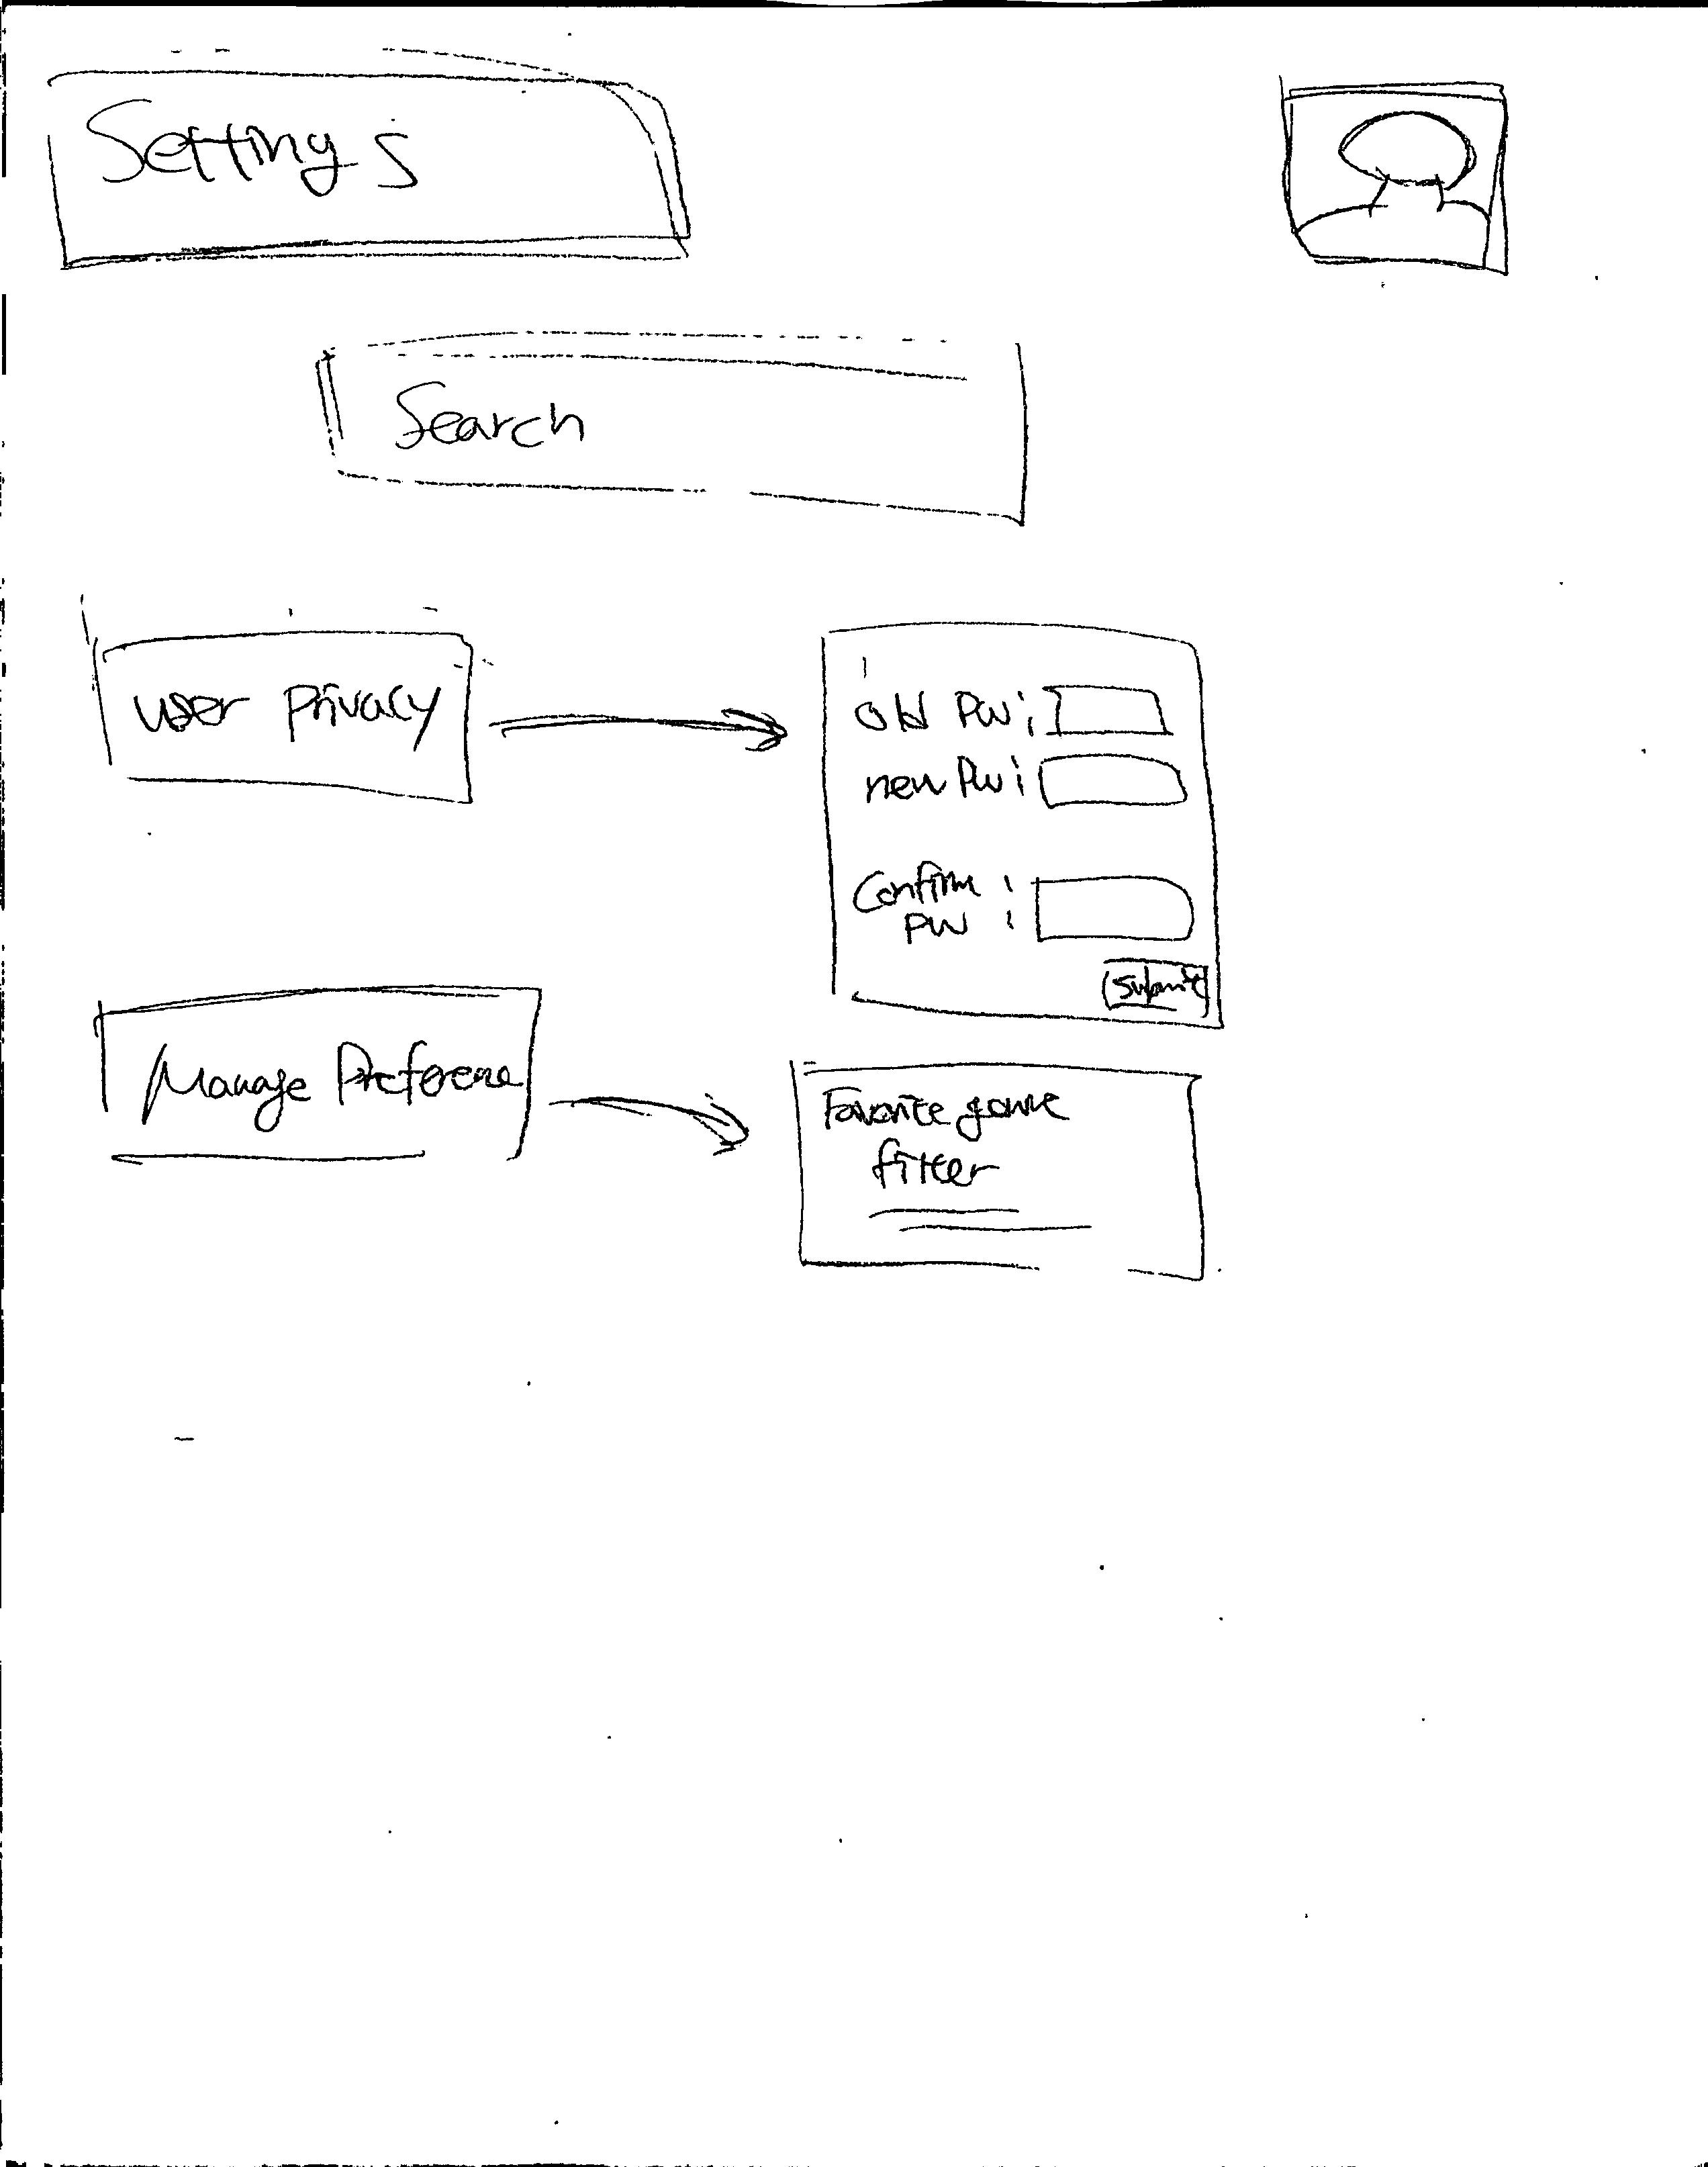 Settings
Search
user Privacy
old PW:
new PW:
Confirm
PW :
Submit
Manage Preference
Favorite game
filter